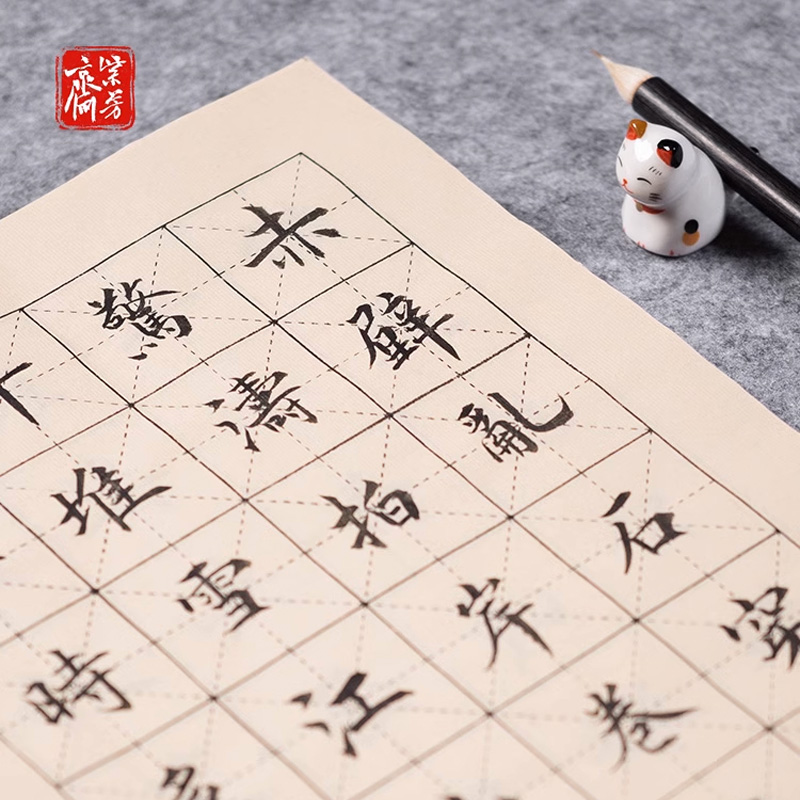 紫芳齋
赤壁亂石穿
驚濤拍岸卷
堆雪江
時多